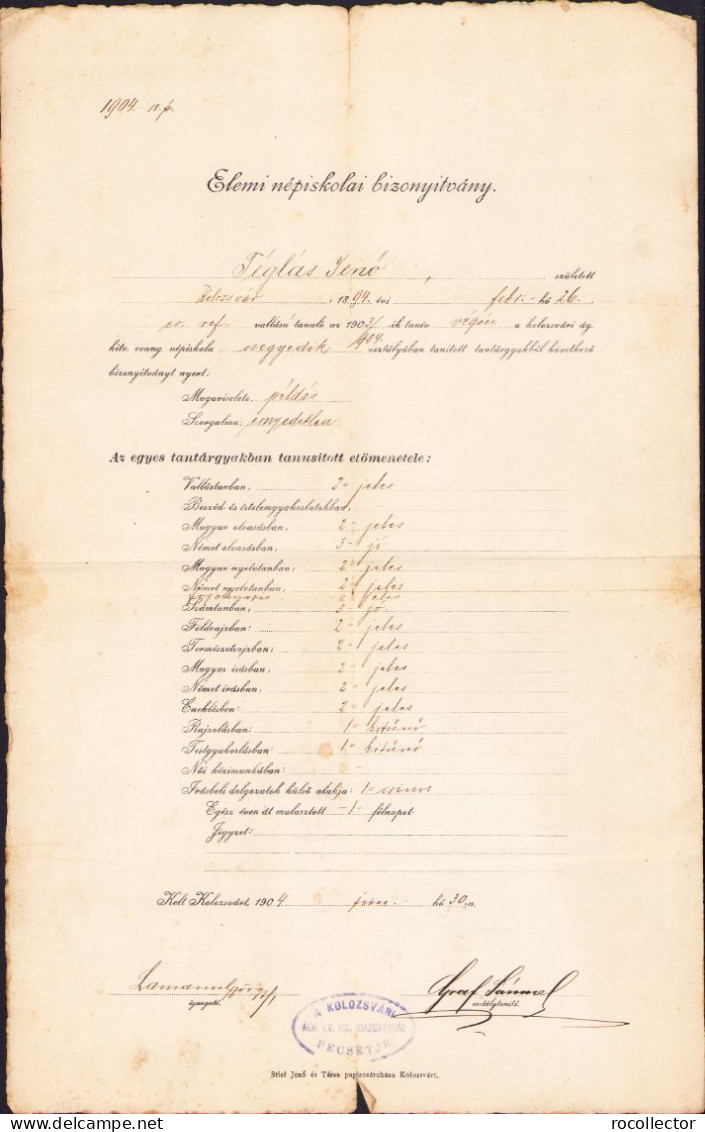 1904.
Elemi népiskolai bizonyitvány.
Téglás Jenő , született
Kolozsvár , 1894. évi febr. hó 26.
ev. ref vallású tanuló az 1903/ ik tanév végén a kolozsvári ág.
1904.
hitv. evang. népiskola negyedik osztályában tanitott tantárgyakból következő
bizonyitványt nyert:
Magaviselete: példás
Szorgalma:
Az egyes tantárgyakban tanusitott előmenetele:
Vallástanban: 2 = jeles
Beszéd és értelemgyakorlatokban,
Magyar olvasásban, 2 = jeles
Német olvasásban, 3 - jó
Magyar nyelvtanban: 2 = jeles
Német nyelvtanban, 2 = jeles
2 jeles
Számtanban, 3 - jó
Földrajzban: 2 - jeles
Természetrajzban: 2 - jeles
Magyar irásban, 2 = jeles
Német irásban: 2 - jeles
Éneklésben: 2 = jeles
Rajzolásban: 1 = kitünő
Testgyakorlásban 1 = kitünő
Női kézimunkában: -
Irásbeli dolgozatok külső alakja: 1 = csinos
Egész éven át mulasztott - 1 - félnapot
Jegyzet:
Kelt Kolozsvárt, 1904 jun. hó 30-n.
Graf Sámuel
igazgató. osztálytanitó.
A KOLOZSVÁRI
ÁGH. EV. ISK. IGAZGATÓSÁG
PECSÉTJE
Stief Jenő és Társa papirosáruháza Kolozsvárt.
rocollector